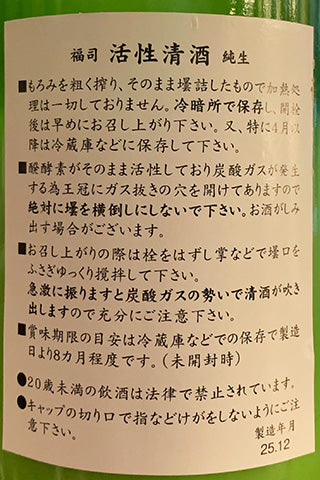 福司 活性清酒 純生
■もろみを粗く搾り、そのまま壜詰したもので加熱処
理は一切しておりません。冷暗所で保存し、開栓
後は早めにお召し上がり下さい。又、特に4月以
降は冷蔵庫などに保存して下さい。
■醗酵素がそのまま活性しており炭酸ガスが発生
する為王冠にガス抜きの穴を開けてありますので
絶対に壜を横倒しにしないで下さい。お酒がしみ
出す場合がございます。
■お召し上がりの際は栓をはずし掌などで壜口を
ふさぎゆっくり撹拌して下さい。
急激に振りますと炭酸ガスの勢いで清酒が吹き
出しますので充分にご注意下さい。
■賞味期限の目安は冷蔵庫などでの保存で製造
日より8カ月程度です。(未開封時)
●20歳未満の飲酒は法律で禁止されています。
●キャップの切り口で指などけがをしないようにご注
意下さい。
製造年月
25.12